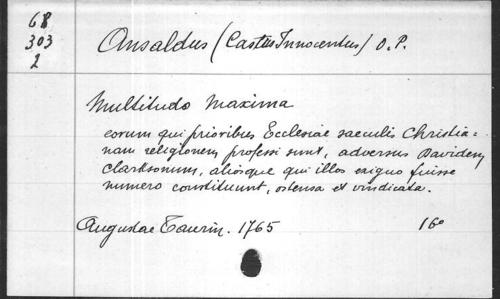 G8
303
2
Ansaldus (Castus Innocentus) O. P.
Multitudo Maxima
eorum qui prioribus Ecclesiae saeculis Christia=
nam religionem professi sunt, adversus Davidem
Clarksonum, aliosque qui illos exiguo fuisse
numero constituunt, ostensa et vindicata.
Augustae Taurin. 1765 16º